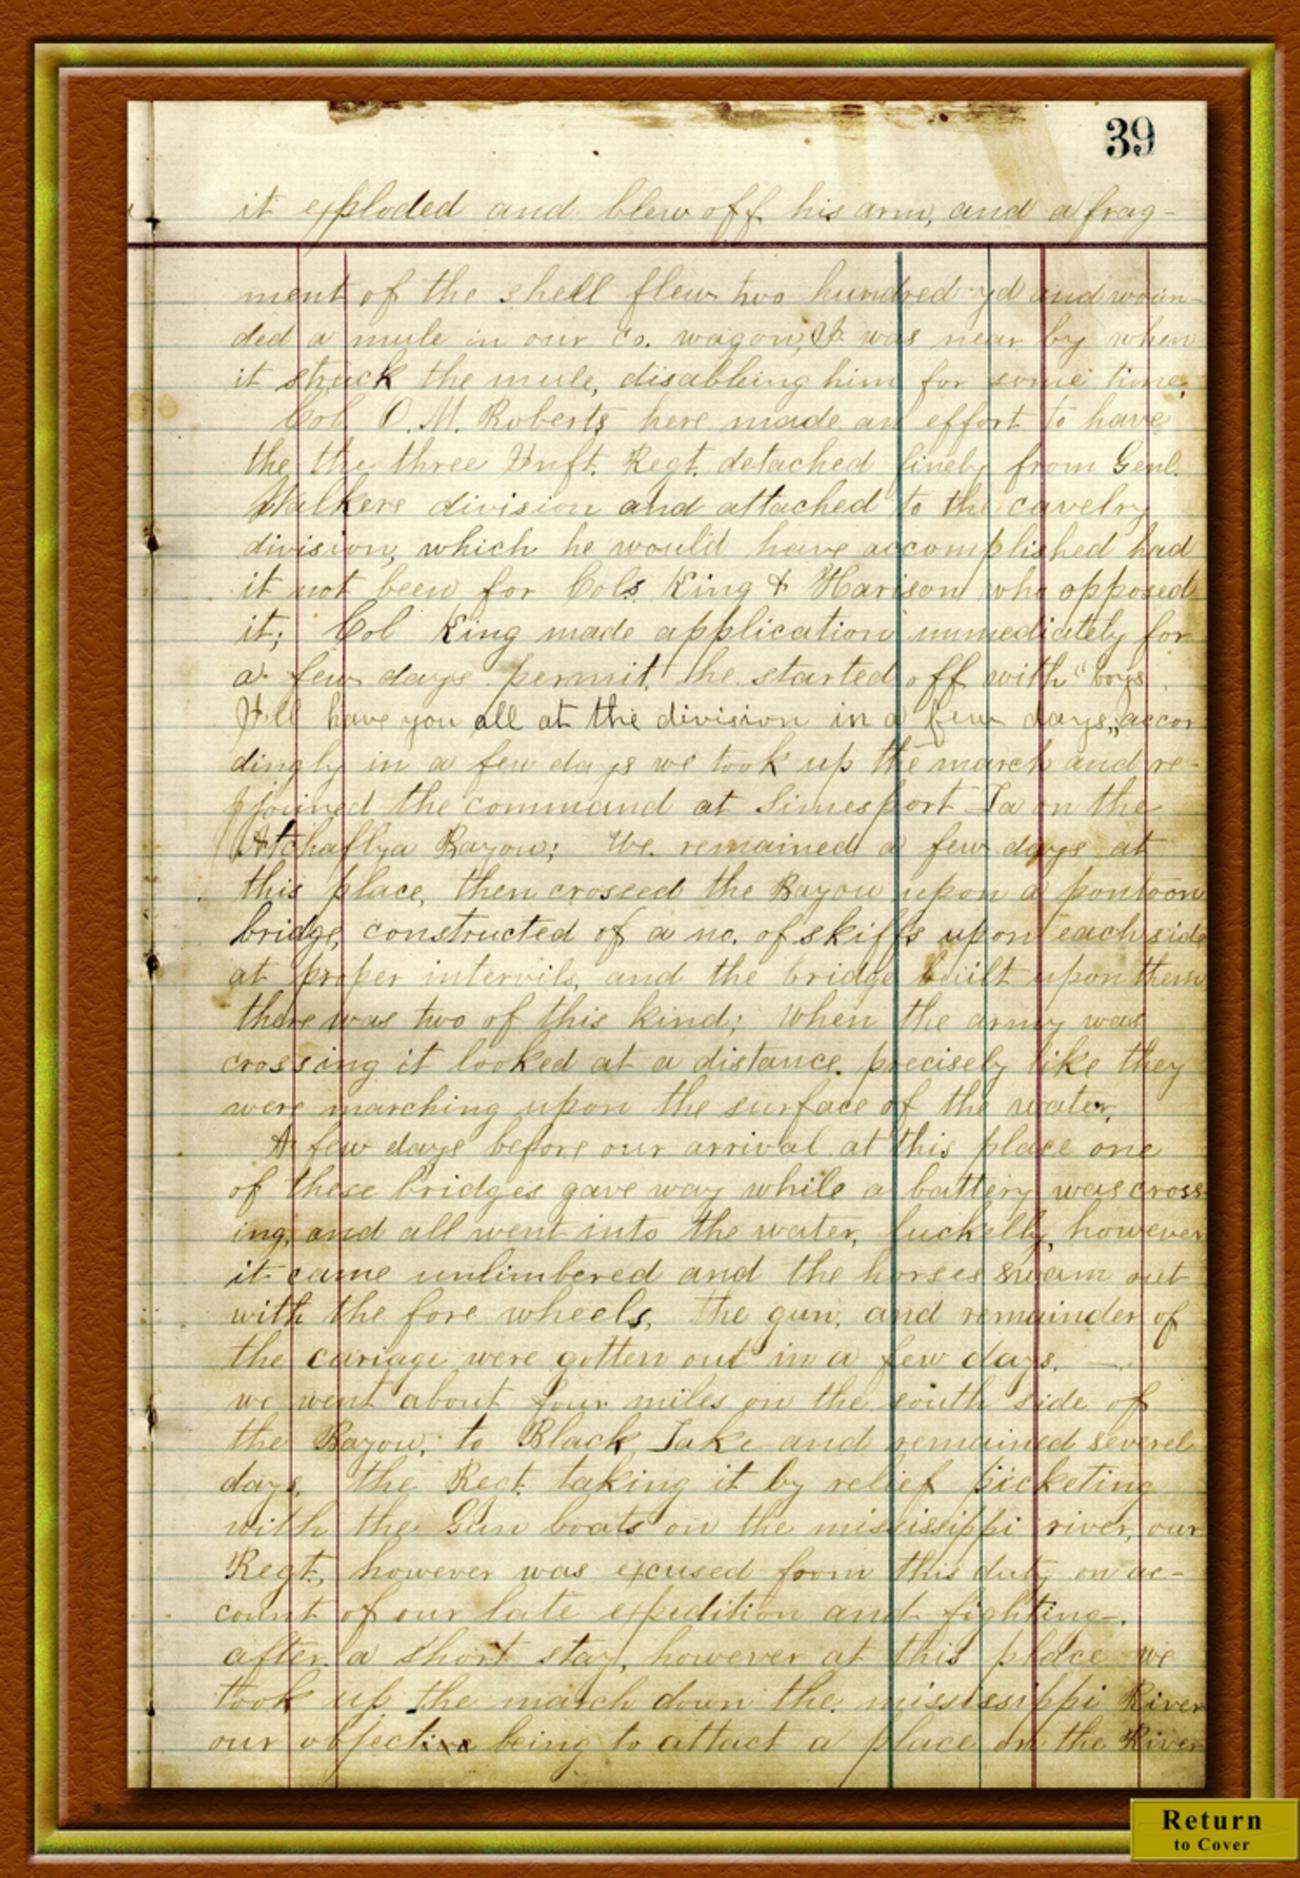 39
it exploded and blew off his arm, and a frag-
ment of the shell flew two hundred yd and woun-
ded a mule in our co. wagon, I was near by when
it struck the mule, disableing him for some time.
Col. O. M. Roberts here made an effort to have
the the three Inft. Regt. detached finely from Genl.
Walkers division and attached to the cavelry
division, which he would have accomplished had
it not been for Cols. King & Harison who opposed
it; Col King made application immediately for
a few days permit, he started off with "boys
I'll have you all at the division in a few days," accor
dingly in a few days we took up the march and re-
joined the command at Simesport La on the
Atchaflya Bayou; We. remained a few days at
this place, then crossed the Bayou upon a pontoon
bridge, constructed of a no. of skiffs upon each side
at proper intervils, and the bridge built upon them
there was two of this kind; When the army was
crossing it looked at a distance precisely like they
were marching upon the surface of the water.
A few days before our arrival at this place one
of these bridges gave way while a battery was cross-
ing, and all went into the water, luckelly, however
it came unlimbered and the horses swam out
with the fore wheels, The gun, and remainder of
the cariage were gotten out in a few days.
we went about four miles on the south side of
the Bayou, to Black Lake and remained severel
days. the Regt. taking it by relief picketing
with the Gun boats on the mississippi river, our
Regt., however was excused form this duty on ac-
count of our late expidition and fighting.
after a short stay, however at this place we
took up the march down the mississippi River
our objective being to attact a place on the River
Return
to Cover